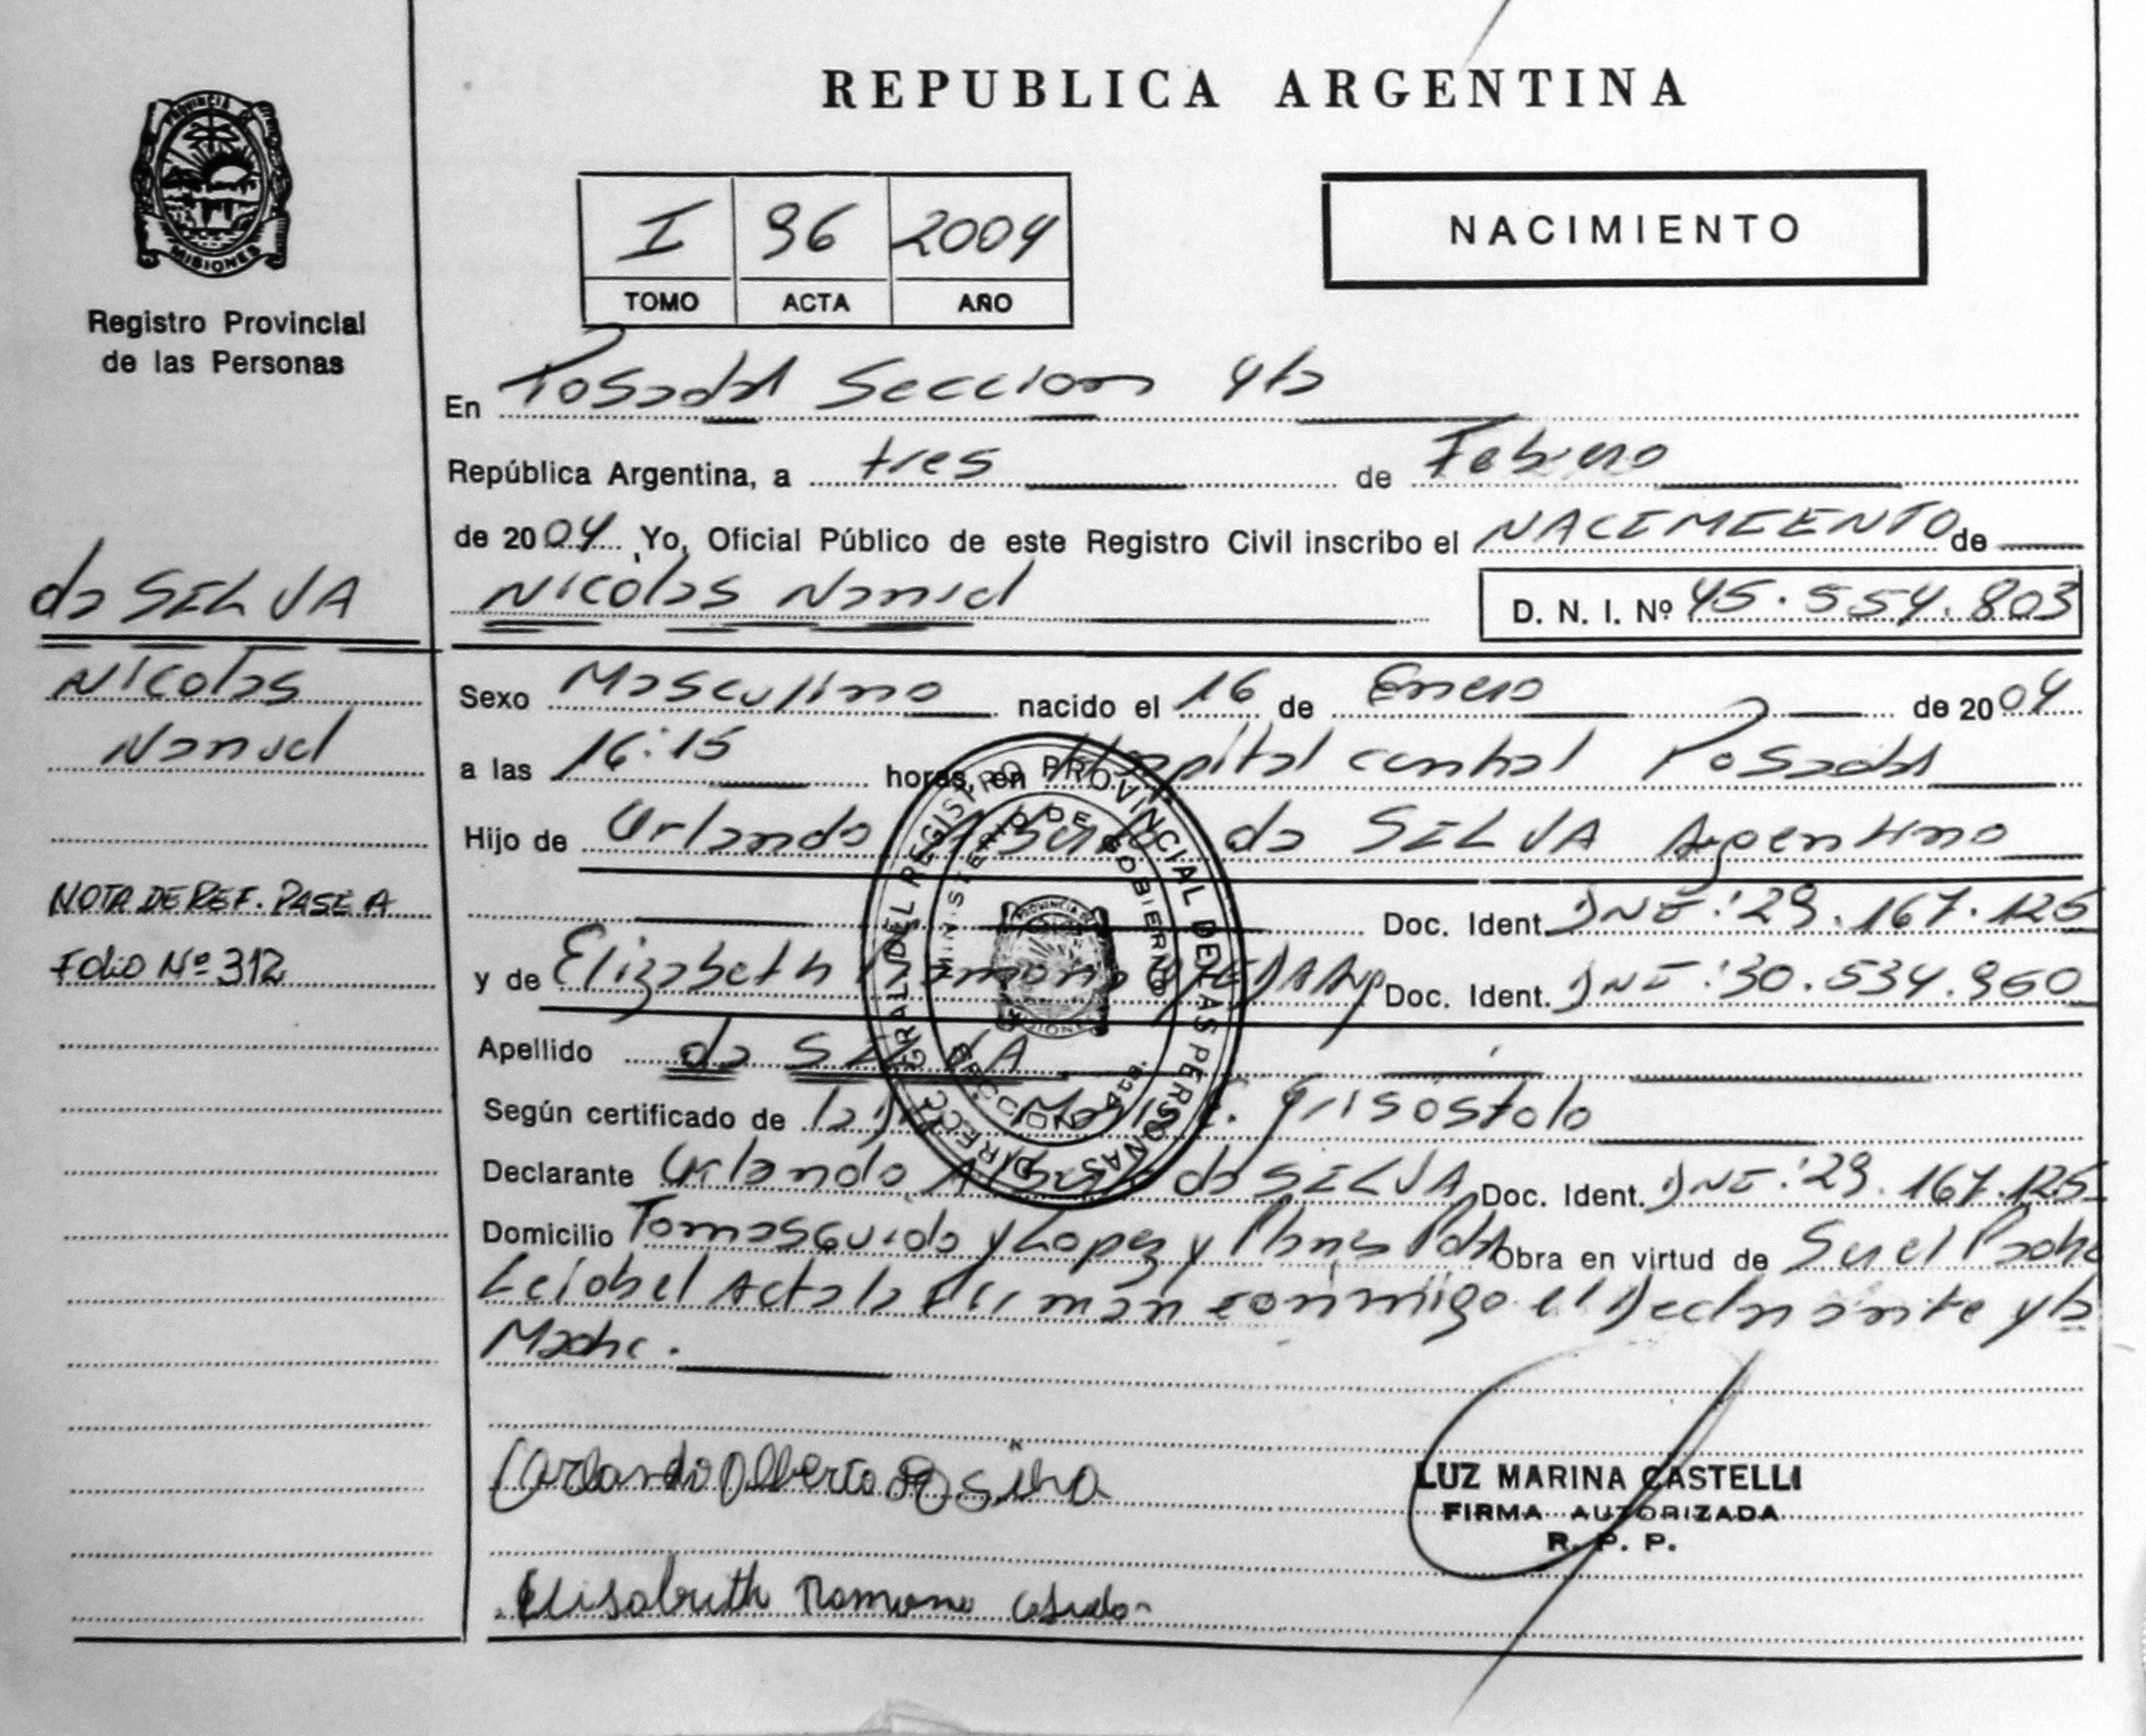 REPUBLICA ARGENTINA
PROVINCIA DE MISIONES
Registro Provincial
de las Personas
I 96 2004
TOMO ACTA AÑO
NACIMIENTO
En Posadas Seccion 4ta
República Argentina, a tres de Febrero
de 2004 Yo, Oficial Público de este Registro Civil inscribo el NACIMIENTO de
Nicolas Nanuel
D. N. I. Nº 45.554.803
da SILVA
Nicolas
Nanuel
NOTA DE REF. PASE A
Folio Nº 312
Sexo Masculino nacido el 16 de Enero de 2004
a las 16:15 horas, en Hospital central Posadas
Hijo de Orlando Alberto da SILVA Argentino
Doc. Ident. DNI: 29.167.125
y de Elizabeth Ramona Doc. Ident. DNI: 30.534.960
Apellido da SILVA
Según certificado de la Dra María E. Grisóstolo
Declarante Orlando Alberto da SILVA Doc. Ident. DNI: 29.167.125
Domicilio Tomas Guido y Lopez y Planes Pdas Obra en virtud de Ser el Padre
Leida el Acta la Firman conmigo el Declarante y la
Madre.
DIRECC. GRAL. DEL REGISTRO PROVINCIAL DE LAS PERSONAS
MINISTERIO DE GOBIERNO
SECCION 4ta.
PROVINCIA DE MISIONES
Orlando Alberto da Silva
LUZ MARINA CASTELLI
FIRMA AUTORIZADA
R. P. P.
Elisabeth Ramona